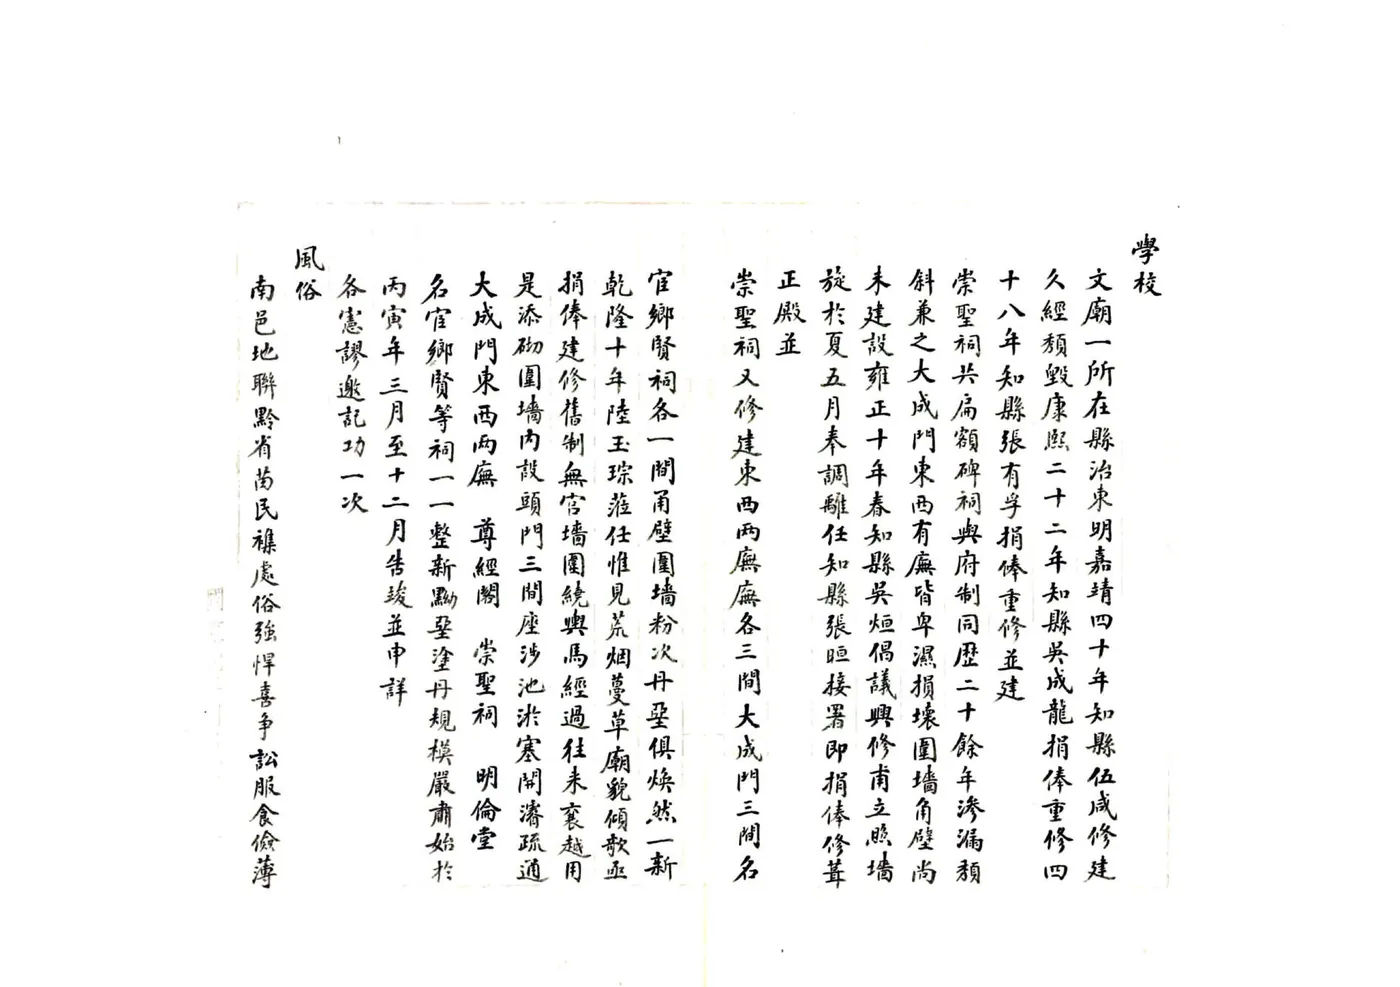 學校
文廟一所在縣治東明嘉靖四十年知縣伍咸修建
久經頽毀康熙二十二年知縣吳成龍捐俸重修四
十八年知縣張有孚捐俸重修並建
崇聖祠共扁額碑祠與府制同歷二十餘年滲漏頽
斜兼之大成門東西有廡皆卑濕損壞圍墻角壁尚
未建設雍正十年春知縣吳烜倡議興修甫立照墻
旋於夏五月奉調離任知縣張晅接署即捐俸修葺
正殿並
崇聖祠又修建東西兩廡廡各三間大成門三間名
宦鄉賢祠各一間甬壁圍墻粉次丹堊俱煥然一新
乾隆十年陸玉琮蒞任惟見荒烟蔓草廟貌傾欹亟
捐俸建修舊制無宮墻圍繞輿馬經過往来褻越用
是添砌圍墻內設頭門三間座涉池淤塞開濬疏通
大成門東西兩廡 尊經閣 崇聖祠 明倫堂
名宦鄉賢等祠一一整新黝堊塗丹規模嚴肅始於
丙寅年三月至十二月告竣並申詳
各憲謬邀記功一次
風俗
南邑地聯黔省苗民襍處俗強悍喜爭訟服食儉薄